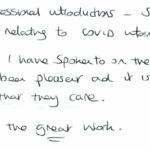 essional introductions - S
relating to covid
I have spoken to on the
been pleasent and it is
that they care.
the great work.